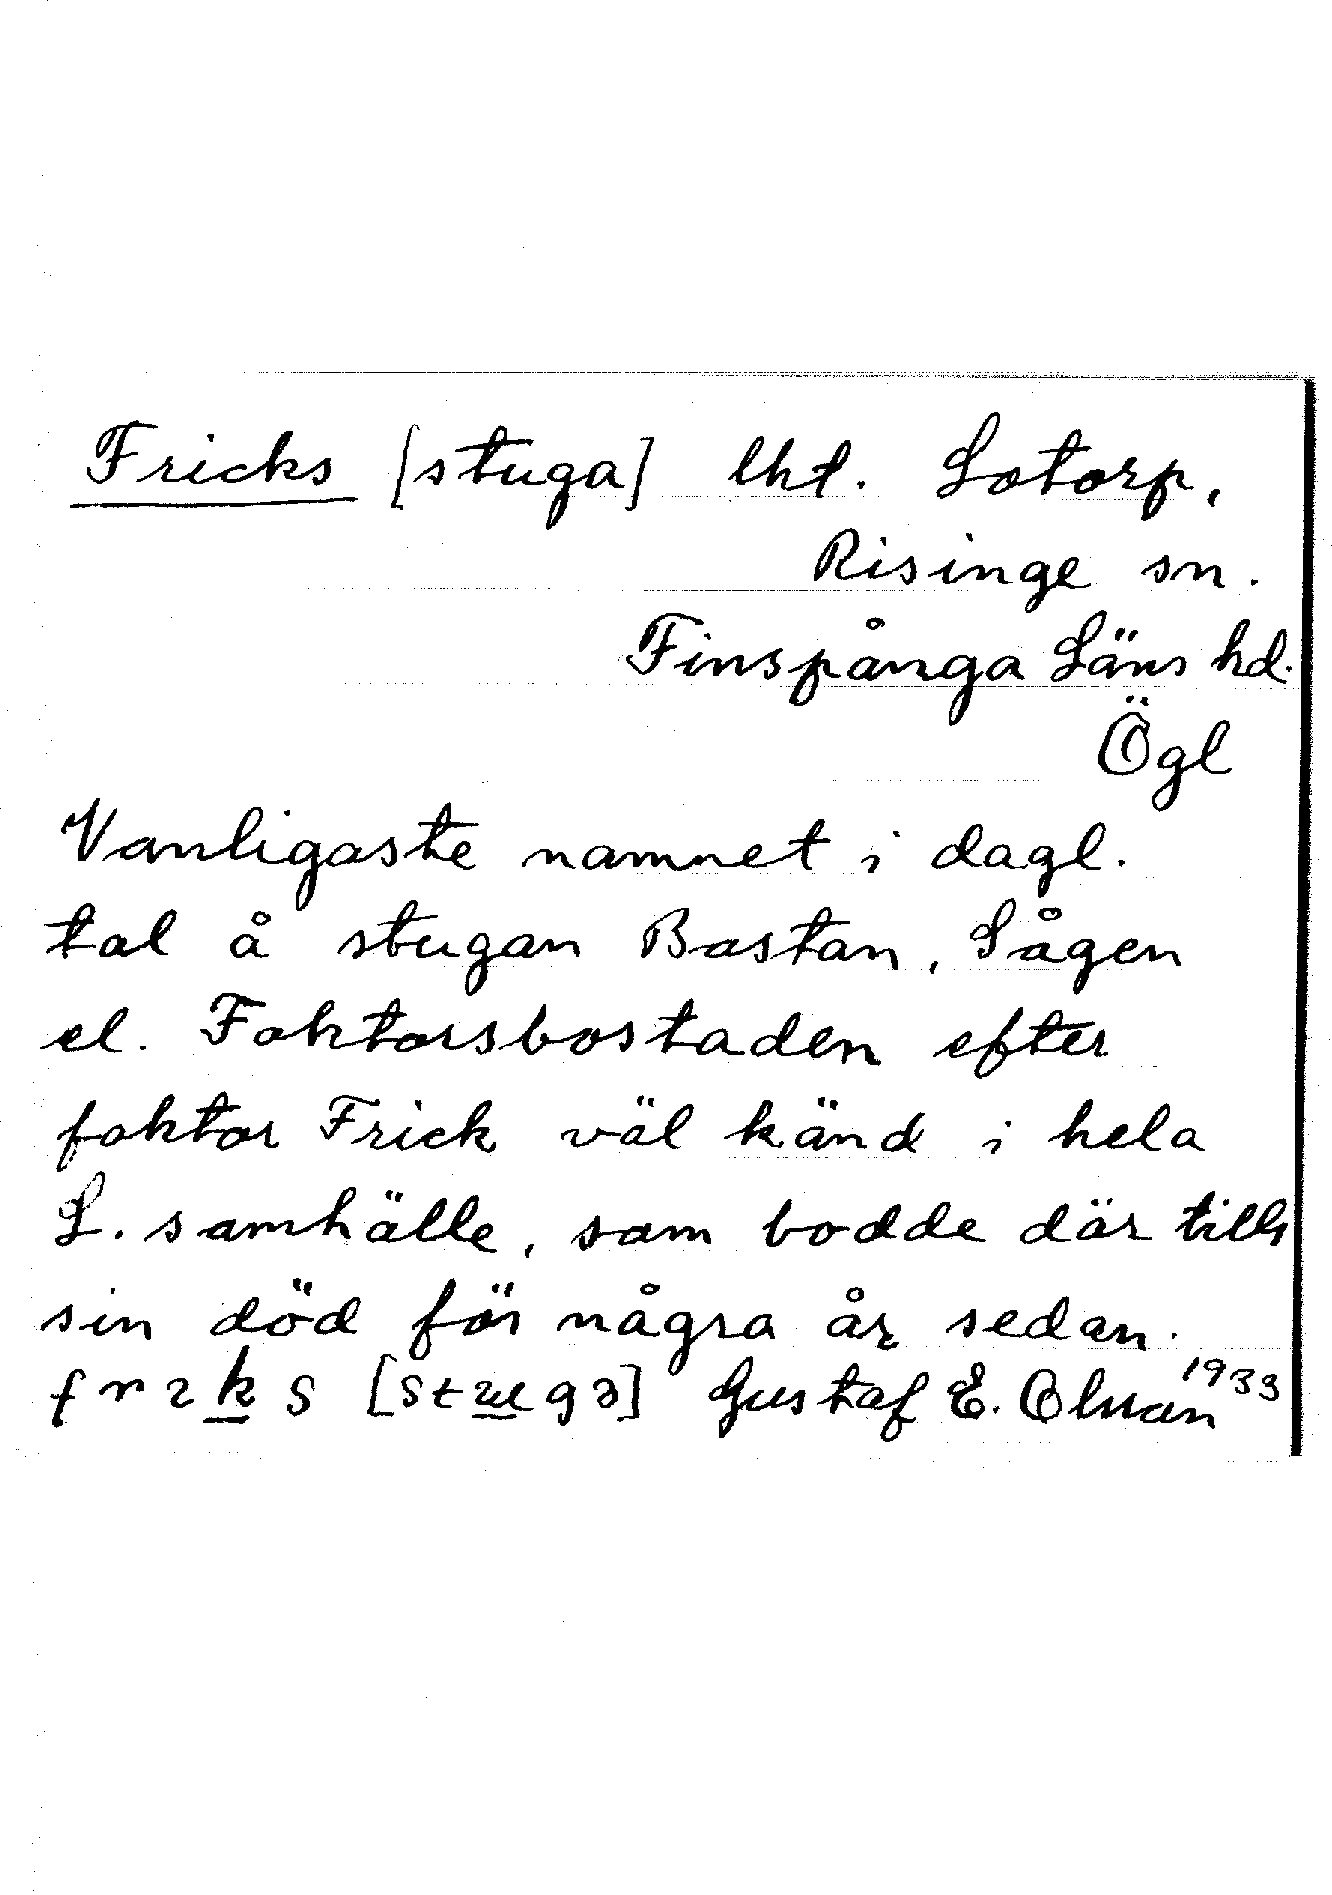 Fricks [stuga] lht. Lotorp,
Risinge sn.
Finspånga Läns hd.
Ögl
Vanligaste namnet i dagl.
tal å stugan Bastan, Sågen
el. Faktorsbostaden efter
faktor Frick väl känd i hela
L. samhälle, som bodde där till
sin död för några år sedan.
[stugə] Gustaf E. Olman 1933